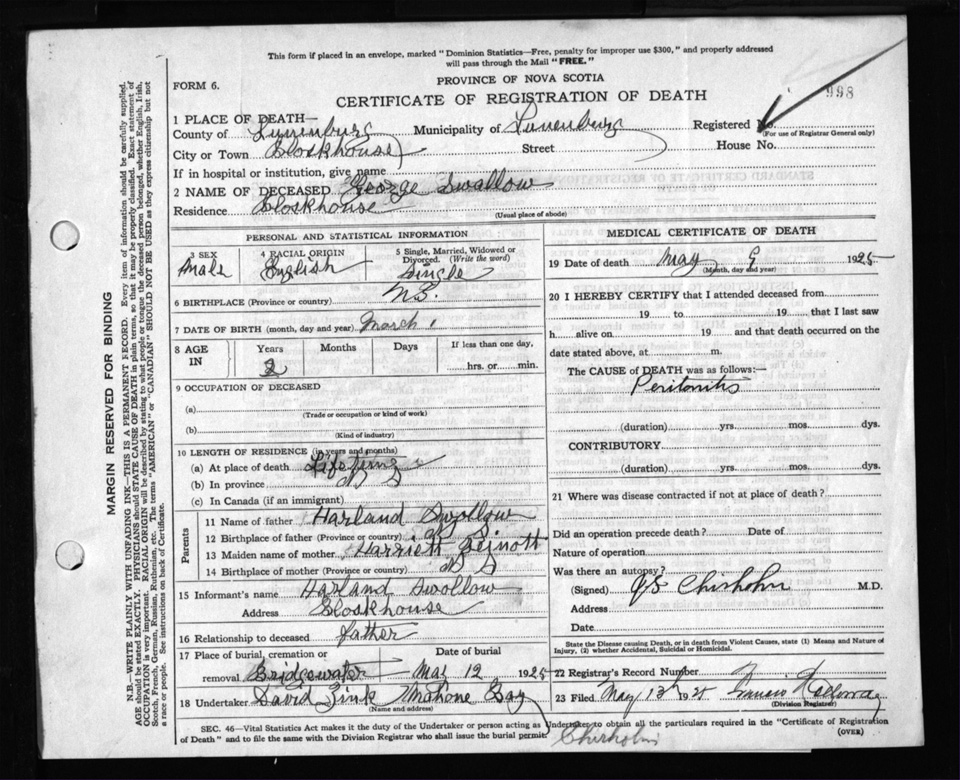 This form if placed in an envelope, marked "Dominion Statistics—Free, penalty for improper use $300," and properly addressed
will pass through the Mail "FREE."
FORM 6.
PROVINCE OF NOVA SCOTIA
998
CERTIFICATE OF REGISTRATION OF DEATH
1 PLACE OF DEATH—
County of Lunenburg Municipality of Lunenburg Registered No.
(For use of Registrar General only)
City or Town Blockhouse Street House No.
If in hospital or institution, give name
2 NAME OF DECEASED George Swallow
Residence Blockhouse
(Usual place of abode)
PERSONAL AND STATISTICAL INFORMATION
3 SEX Male
4 RACIAL ORIGIN English
5 Single, Married, Widowed or Divorced. (Write the word) Single
6 BIRTHPLACE (Province or country) N.S.
7 DATE OF BIRTH (month, day and year) March 1
8 AGE IN Years Months Days If less than one day,
2 hrs. or min.
9 OCCUPATION OF DECEASED
(a)
(Trade or occupation or kind of work)
(b)
(Kind of industry)
10 LENGTH OF RESIDENCE (in years and months)
(a) At place of death Lifetime
(b) In province N S
(c) In Canada (if an immigrant)
Parents
11 Name of father Harland Swollow
12 Birthplace of father (Province or country) N S
13 Maiden name of mother Harriett
14 Birthplace of mother (Province or country) N S
15 Informant's name Harland Swollow
Address Blockhouse
16 Relationship to deceased father
17 Place of burial, cremation or removal Bridgewater Date of burial May 12 1925
18 Undertaker David Zink Mahone Bay
(Name and address)
MEDICAL CERTIFICATE OF DEATH
19 Date of death May 9 1925
(Month, day and year)
20 I HEREBY CERTIFY that I attended deceased from
19 to 19 that I last saw
h alive on 19 and that death occurred on the
date stated above, at m.
The CAUSE of DEATH was as follows:—
Peritonitis
(duration) yrs. mos. dys.
CONTRIBUTORY
(duration) yrs. mos. dys.
21 Where was disease contracted if not at place of death?
Did an operation precede death? Date of
Nature of operation
Was there an autopsy?
(Signed) Chisholm M.D.
Address
Date
State the Disease causing Death, or in death from Violent Causes, state (1) Means and Nature of
Injury, (2) whether Accidental, Suicidal or Homicidal.
22 Registrar's Record Number
23 Filed May 13 1925
(Division Registrar)
SEC. 46—Vital Statistics Act makes it the duty of the Undertaker or person acting as Undertaker to obtain all the particulars required in the "Certificate of Registration
of Death" and to file the same with the Division Registrar who shall issue the burial permit.
(OVER)
Chisholm
MARGIN RESERVED FOR BINDING
N.B.—WRITE PLAINLY WITH UNFADING INK—THIS IS A PERMANENT RECORD. Every item of information should be carefully supplied.
AGE should be stated EXACTLY. PHYSICIANS should STATE CAUSE OF DEATH in plain terms, so that it may be properly classified. Exact statement of
OCCUPATION is very important. RACIAL ORIGIN will be described by stating to what people or tongue the deceased person belonged, whether English, Irish,
Scotch, French, German, Russian, Ruthenian, etc. The terms "AMERICAN" or "CANADIAN" SHOULD NOT BE USED as they express citizenship but not
a race or people. See instructions on back of Certificate.